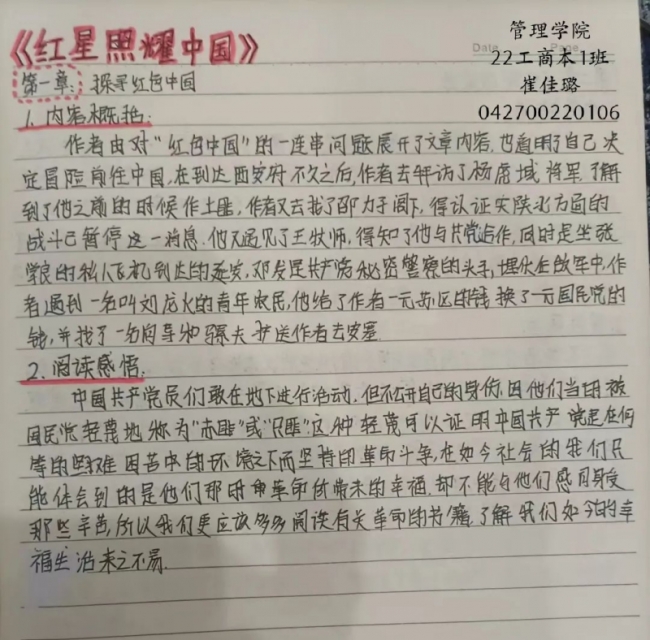 《红星照耀中国》
管理学院
Date
Page
22工商本1班
崔佳璐
042700220106
第一章：探寻红色中国
1. 内容概括：
作者由对“红色中国”的一连串问题展开了文章内容，也直明了自己决
定冒险前往中国，在到达西安府不久之后，作者去拜访了杨虎城将军，了解
到了他之前的时候作土匪，作者又去找了邵力子阁下，得认证实陕北方面的
战斗已暂停这一消息，他又遇见了王牧师，得知了他与共党合作，同时是坐张
学良的私人飞机到达的延安，邓发是共产党秘密警察的头子，埋伏在敌军中，作
者遇到一名叫刘龙火的青年农民，他给了作者一元苏区的钱换了一元国民党的
钱，并找了一名向导和骡夫护送作者去安塞
2. 阅读感悟：
中国共产党员们敢在地下进行活动，但不公开自己的身份，因他们当时被
国民党轻蔑地称为“赤匪”或“共匪”这种轻蔑可以证明中国共产党是在何
等的艰难困苦中的环境之下而坚持的革命斗争，在如今社会的我们只
能体会到的是他们那时用革命所带来的幸福，却不能与他们感同身受
那些辛苦，所以我们更应该多多阅读有关革命的书籍，了解我们如今的幸
福生活来之不易．